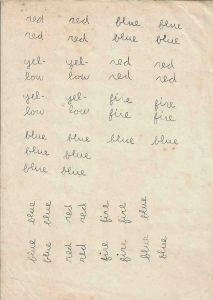 red red blue blue
red red blue blue
yel- yel- red red
low low red red
yel- yel- fire fire
low low fire fire
blue blue blue blue
blue blue
blue blue
blue blue red red fire fire blue
blue blue red red fire fire blue blue